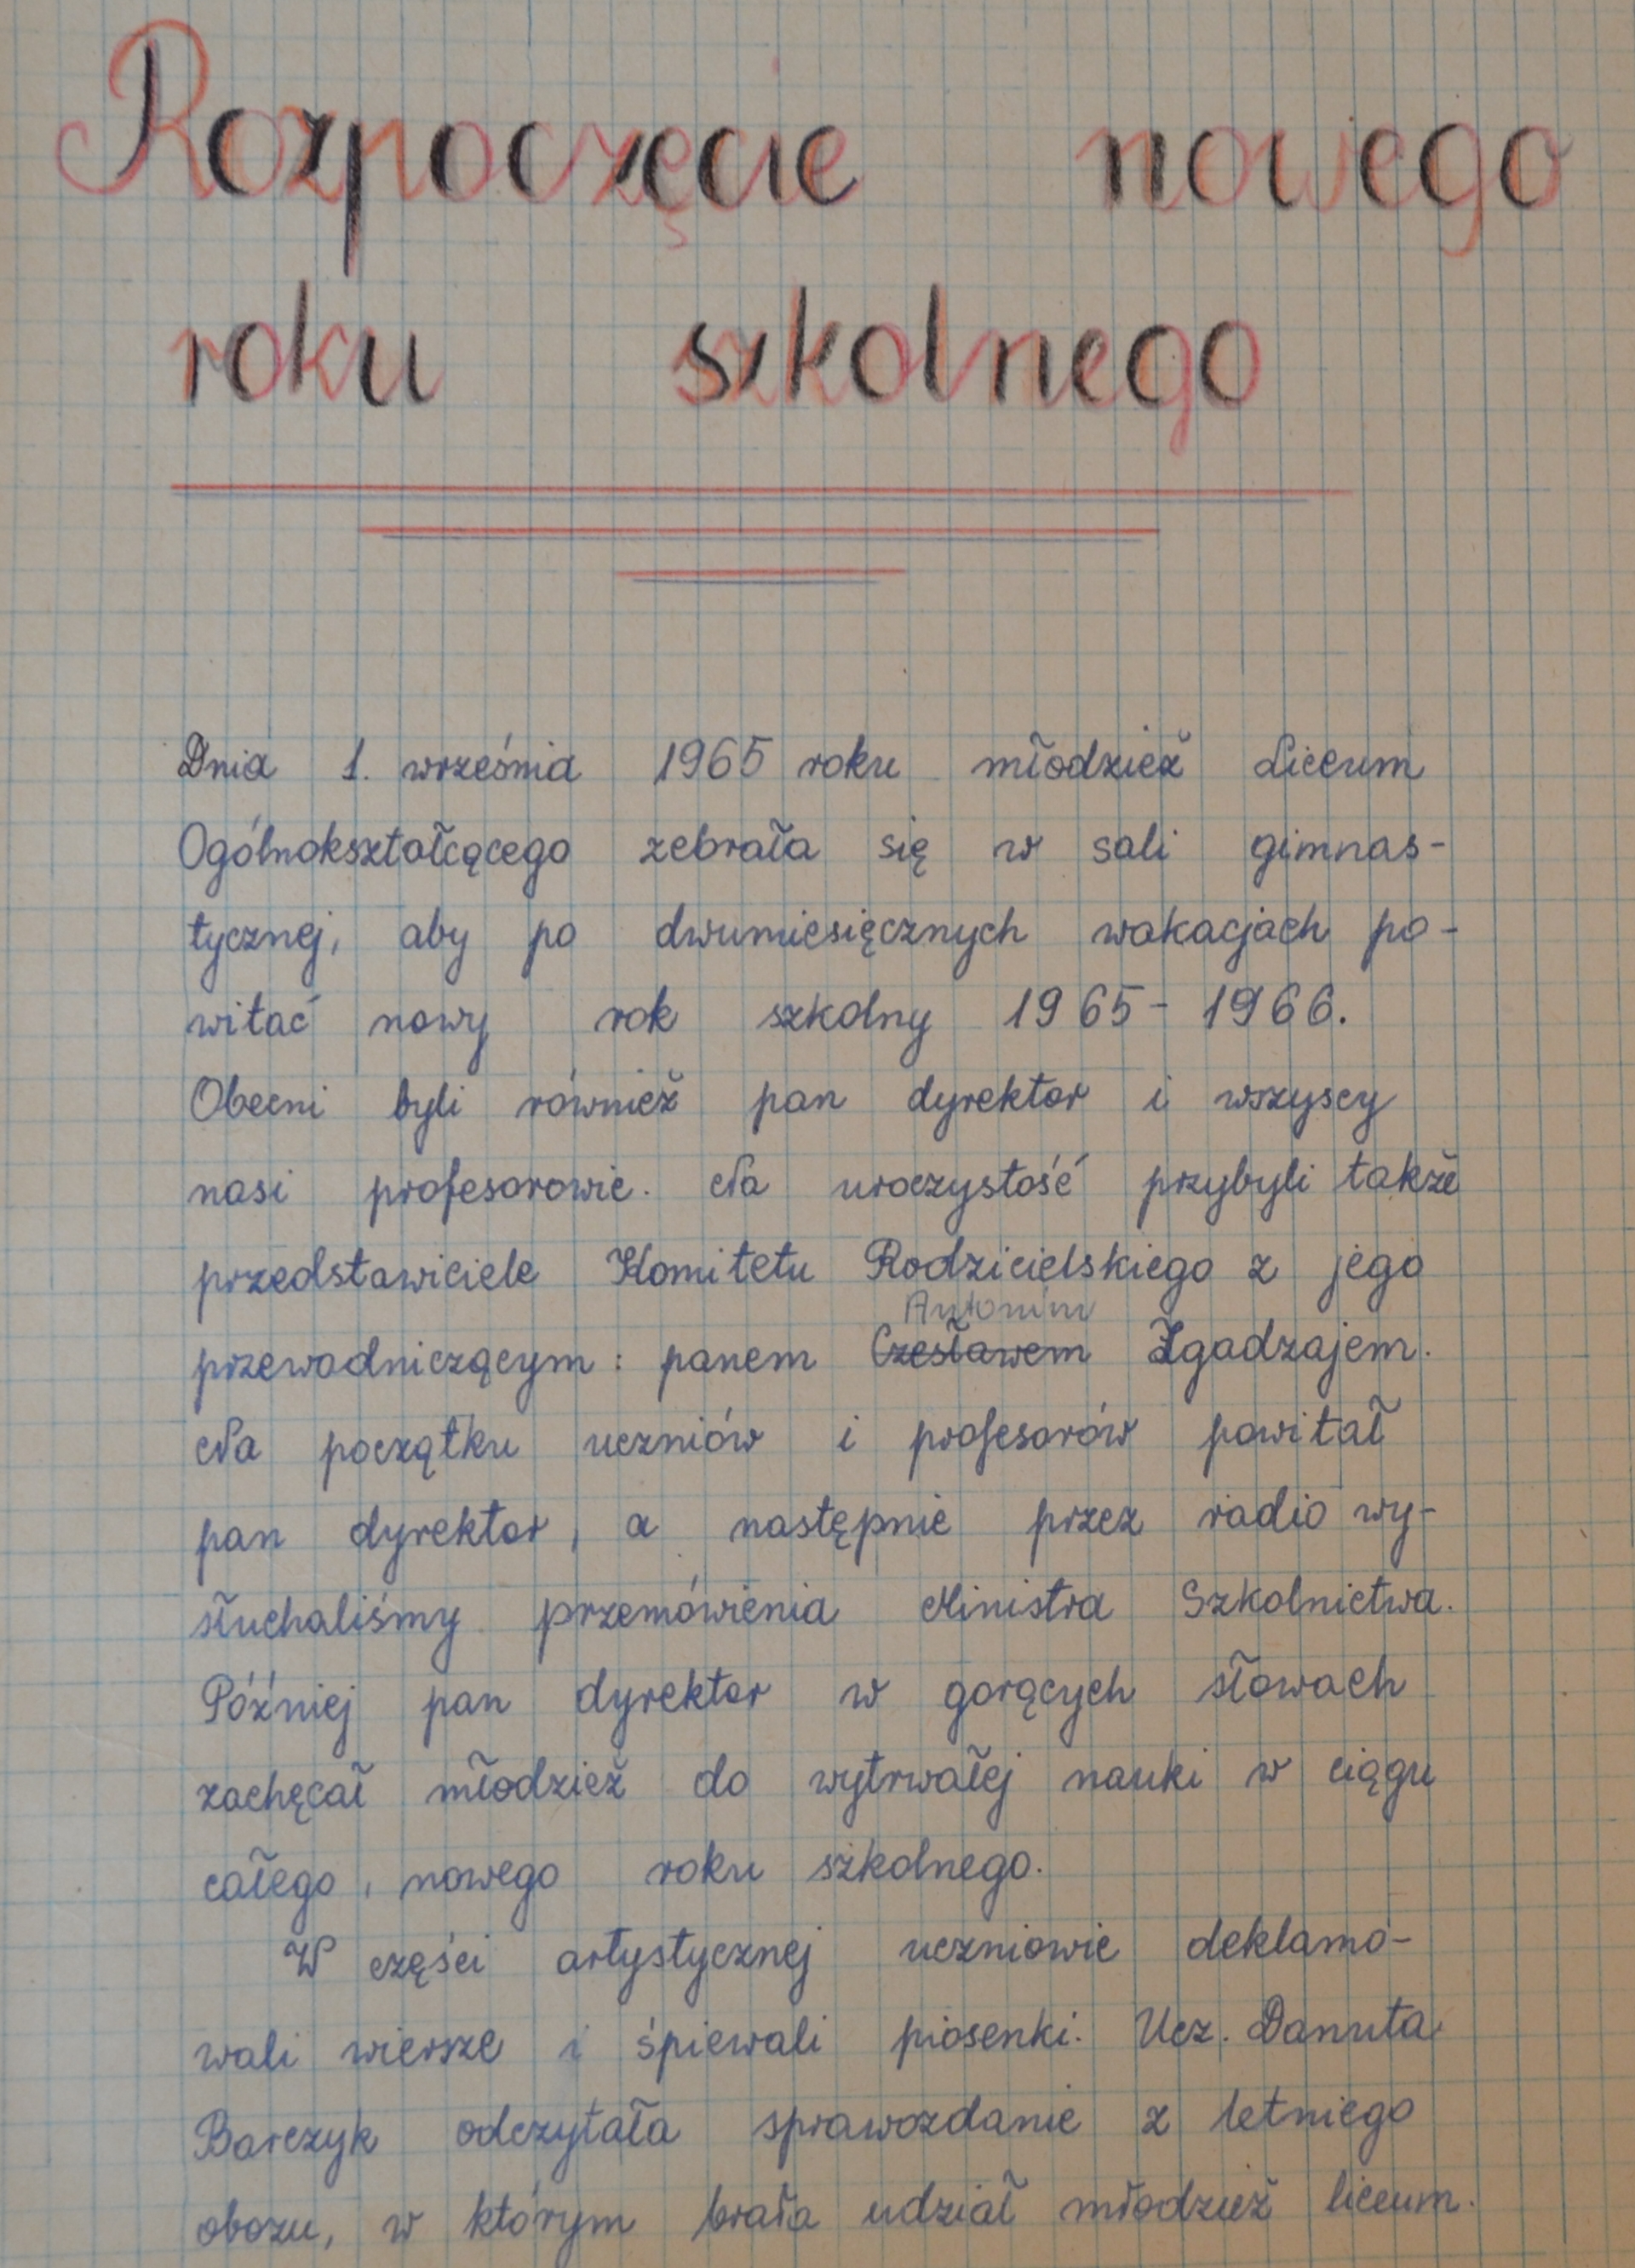 Rozpoczęcie nowego
roku szkolnego
Dnia 1. września 1965 roku młodzież Liceum
Ogólnokształcącego zebrała się w sali gimnas-
tycznej, aby po dwumiesięcznych wakacjach po-
witać nowy rok szkolny 1965 - 1966.
Obecni byli również pan dyrektor i wszyscy
nasi profesorowie. Na uroczystość przybyli także
przedstawiciele Komitetu Rodzicielskiego z jego
Antonim
przewodniczącym: panem Czesławem Zgadzajem.
Na początku uczniów i profesorów powitał
pan dyrektor, a następnie przez radio wy-
słuchaliśmy przemówienia Ministra Szkolnictwa.
Później pan dyrektor w gorących słowach
zachęcał młodzież do wytrwałej nauki w ciągu
całego, nowego roku szkolnego.
W części artystycznej uczniowie deklamo-
wali wiersze i śpiewali piosenki. Ucz. Danuta
Barczyk odczytała sprawozdanie z letniego
obozu, w którym brała udział młodzież liceum.